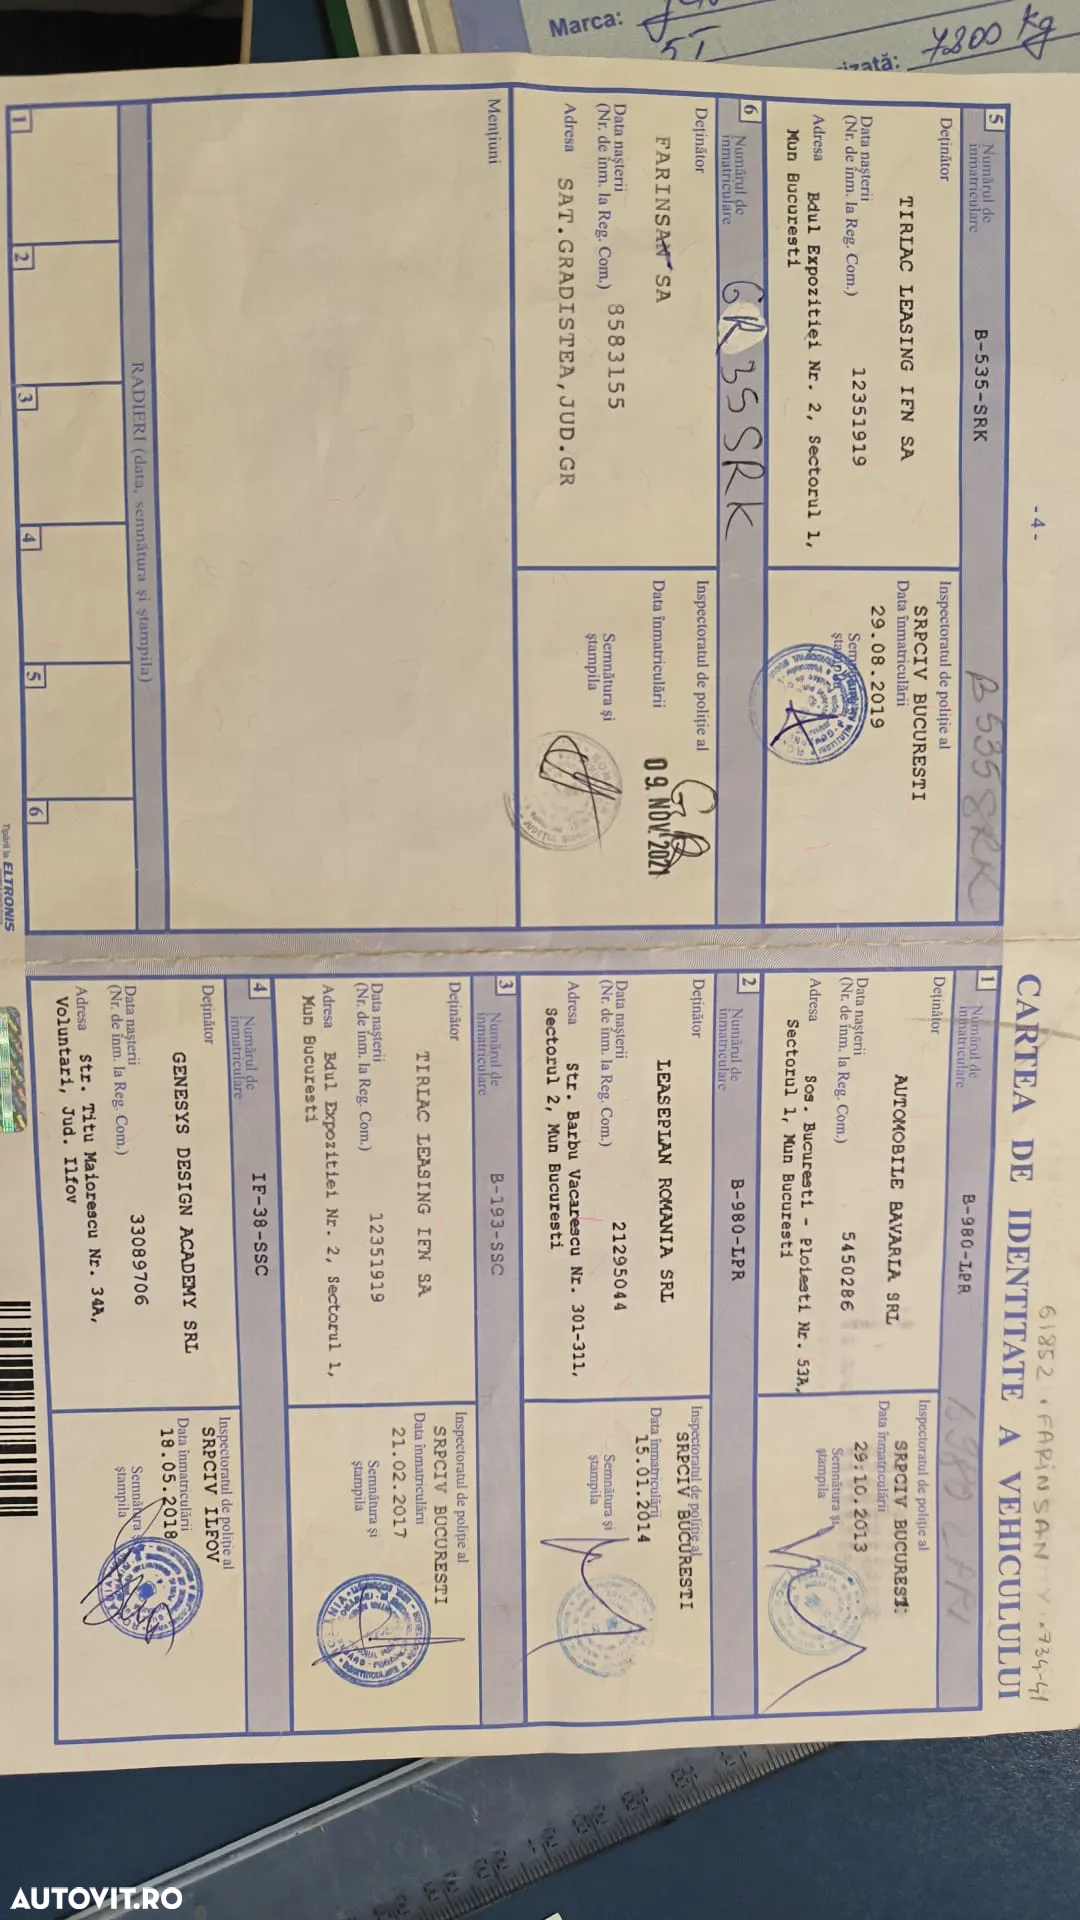 Marca:
izată: 7800 kg
61852 . FARINSAN
CARTEA DE IDENTITATE A VEHICULULUI
1 Numărul de înmatriculare B-980-LPR
Deținător AUTOMOBILE BAVARIA SRL
Data nașterii
(Nr. de înm. la Reg. Com.) 5450286
Adresa Sos. Bucuresti - Ploiesti Nr. 53A,
Sectorul 1, Mun Bucuresti
Inspectoratul de poliție al
SRPCIV BUCURESTI
Data înmatriculării
29.10.2013
Semnătura și
ștampila
2 Numărul de înmatriculare B-980-LPR
Deținător LEASEPLAN ROMANIA SRL
Data nașterii
(Nr. de înm. la Reg. Com.) 21295044
Adresa Str. Barbu Vacarescu Nr. 301-311,
Sectorul 2, Mun Bucuresti
Inspectoratul de poliție al
SRPCIV BUCURESTI
Data înmatriculării
15.01.2014
Semnătura și
ștampila
3 Numărul de înmatriculare B-193-SSC
Deținător TIRIAC LEASING IFN SA
Data nașterii
(Nr. de înm. la Reg. Com.) 12351919
Adresa Bdul Expozitiei Nr. 2, Sectorul 1,
Mun Bucuresti
Inspectoratul de poliție al
SRPCIV BUCURESTI
Data înmatriculării
21.02.2017
Semnătura și
ștampila
4 Numărul de înmatriculare IF-38-SSC
Deținător GENESYS DESIGN ACADEMY SRL
Data nașterii
(Nr. de înm. la Reg. Com.) 33089706
Adresa Str. Titu Maiorescu Nr. 34A,
Voluntari, Jud. Ilfov
Inspectoratul de poliție al
SRPCIV ILFOV
Data înmatriculării
18.05.2018
Semnătura și
ștampila
- 4 -
5 Numărul de înmatriculare B-535-SRK B 535 SRK
Deținător TIRIAC LEASING IFN SA
Data nașterii
(Nr. de înm. la Reg. Com.) 12351919
Adresa Bdul Expozitiei Nr. 2, Sectorul 1,
Mun Bucuresti
Inspectoratul de poliție al
SRPCIV BUCURESTI
Data înmatriculării
29.08.2019
6 Numărul de înmatriculare GR 35 SRK
Deținător FARINSAN SA
Data nașterii
(Nr. de înm. la Reg. Com.) 8583155
Adresa SAT.GRADISTEA,JUD.GR
Inspectoratul de poliție al GR
Data înmatriculării 09. NOV. 2021
Semnătura și
ștampila
Mențiuni
RADIERI (data, semnătura și ștampila)
1 2 3 4 5 6
Tipărit la ELTRONIS
AUTOVIT.RO